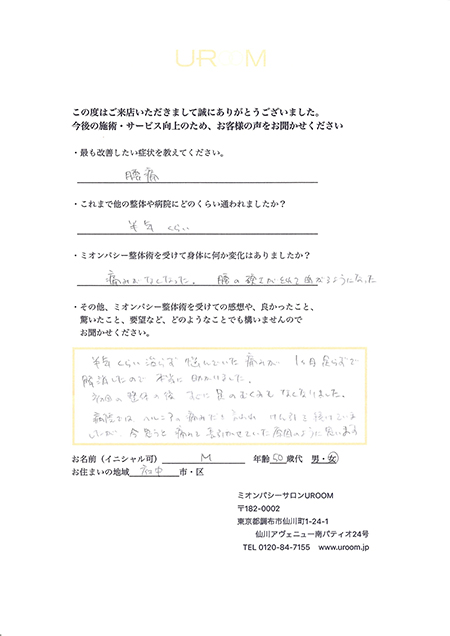 UROOM
この度はご来店いただきまして誠にありがとうございました。
今後の施術・サービス向上のため、お客様の声をお聞かせください
・最も改善したい症状を教えてください。
腰痛
・これまで他の整体や病院にどのくらい通われましたか？
半年 くらい
・ミオンパシー整体術を受けて身体に何か変化はありましたか？
痛みがなくなった。 腰の硬さがとれて曲がるようになった
・その他、ミオンパシー整体術を受けての感想や、良かったこと、
驚いたこと、要望など、どのようなことでも構いませんので
お聞かせください。
半年くらい治らず 悩んでいた痛みが 1ヶ月足らずで
解消したので 本当に 助かりました。
初回の整体の後 すぐに足のむくみもなくなりました。
病院では ヘルニアの痛みだと言われ けん引を続けていま
したが、今思うと 痛みを長引かせていた原因のように思います
お名前（イニシャル可） M 年齢 50 歳代 男・女
お住まいの地域 府中 市・区
ミオンパシーサロンUROOM
〒182-0002
東京都調布市仙川町1-24-1
仙川アヴェニュー南パティオ24号
TEL 0120-84-7155 www.uroom.jp